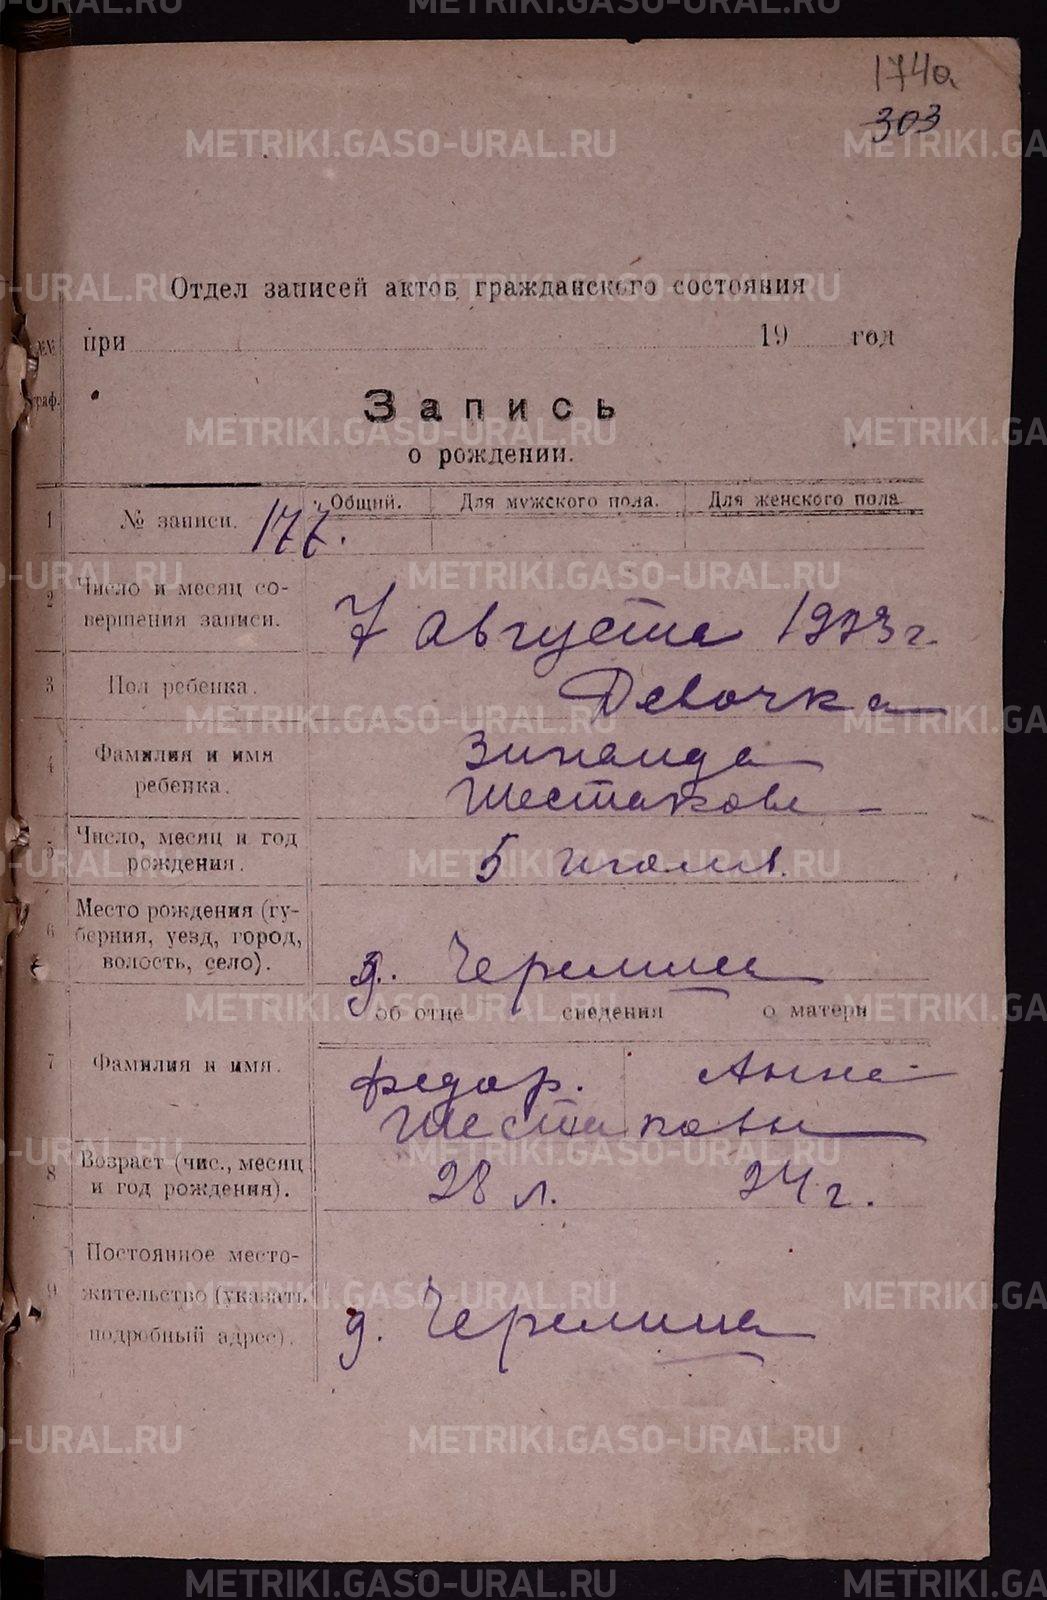 174а
303
Отдел записей актов гражданского состояния
при 19 год
№№
граф.
Запись
о рождении.
Общий. Для мужского пола. Для женского пола
1 № записи. 177.
2 Число и месяц со-
вершения записи. 7 августа 1923 г.
3 Пол ребенка. Девочка
4 Фамилия и имя
ребенка. Зинаида
Шестакова
5 Число, месяц и год
рождения. 5 июля.
6 Место рождения (гу-
берния, уезд, город,
волость, село). д. Черемша
об отце сведения о матери
7 Фамилия и имя. Федор. Анна
Шестаковы
8 Возраст (чис., месяц
и год рождения). 28 л. 24 г.
9 Постоянное место-
жительство (указать
подробный адрес). д. Черемша
METRIKI.GASO-URAL.RU